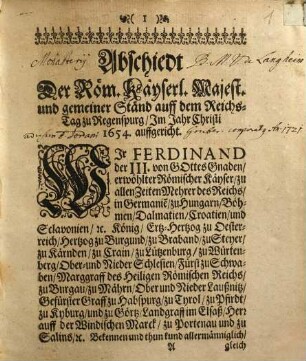 ( 1 )
Abschiedt
Der Röm. Käyserl. Majest.
und gemeiner Ständ auff dem Reichs-
Tag zu Regenspurg / Im Jahr Christi
1654. auffgericht.
WIr FERDINAND
der III. von GOttes Gnaden/
erwöhlter Römischer Käyser / zu
allen Zeiten Mehrer des Reichs/
in Germaniē/zu Hungarn/Böh-
men/Dalmatien/Croatien/und
Sclavonien / ꝛc. König / Ertz-Hertzog zu Oester-
reich/ Hertzog zu Burgund/zu Braband/zu Steyer/
zu Kärnden / zu Crain / zu Lützenburg / zu Würten-
berg / Ober-und Nieder Schlesien/ Fürst zu Schwa-
ben/ Marggraff des Heiligen Römischen Reichs/
zu Burgau/zu Mähren/ Ober und Nieder Laußnitz/
Gefürster Graff zu Habspurg/zu Tyrol/ zu Pfirdt/
zu Kyburg/ und zu Görtz, Landgraf im Elsaß/ Herr
auff der Windischen Marck/ zu Portenau und zu
Salins/ ꝛc. Bekennen und thun kund allermänniglich/
A gleich